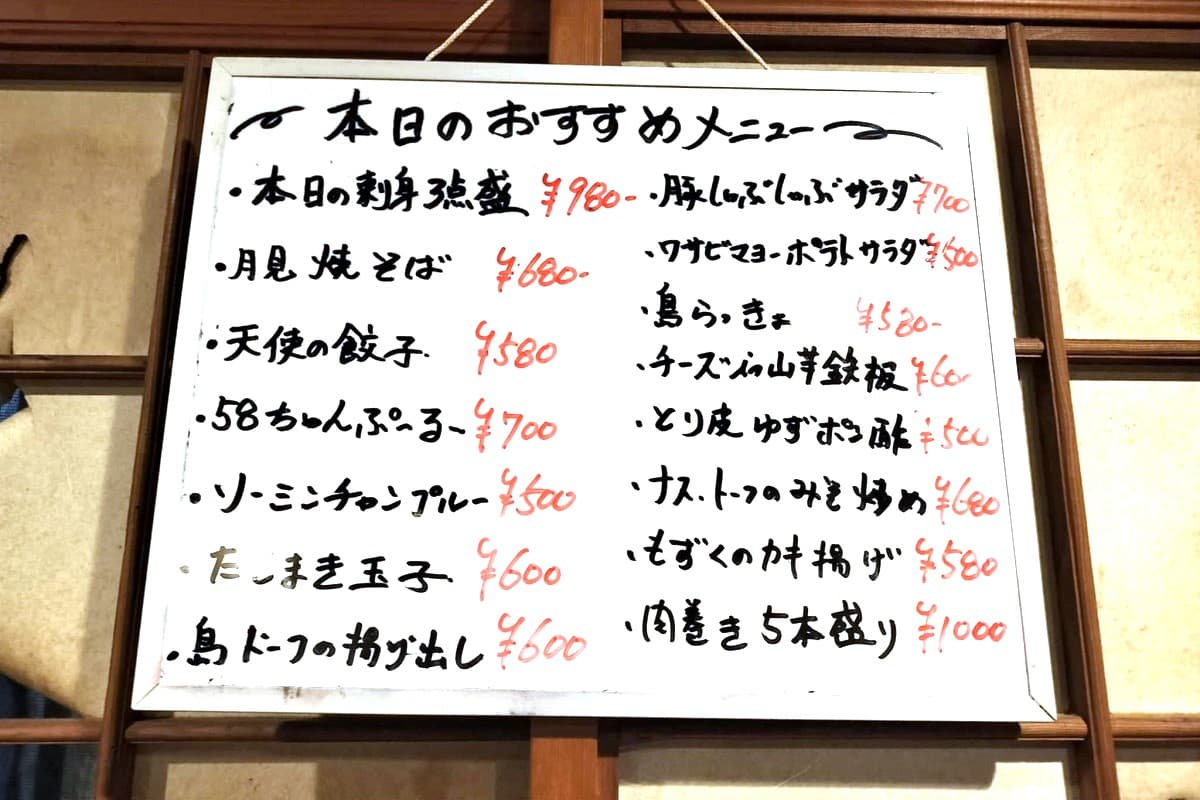 本日のおすすめメニュー
・本日の刺身3点盛 ¥980-
・月見焼そば ¥680-
・天使の餃子 ¥580
・58ちゃんぷ〜る〜 ¥700
・ソーミンチャンプルー ¥500
・だしまき玉子 ¥600
・島ドーフの揚げ出し ¥600
・豚しゃぶしゃぶサラダ ¥700
・ワサビマヨーポテトサラダ ¥500
・島らっきょ ¥580-
・チーズin山芋鉄板
・とり皮ゆずポン酢 ¥500
・ナス、トーフのみそ炒め ¥680
・もずくのカキ揚げ ¥580
・肉巻き5本盛り ¥1000